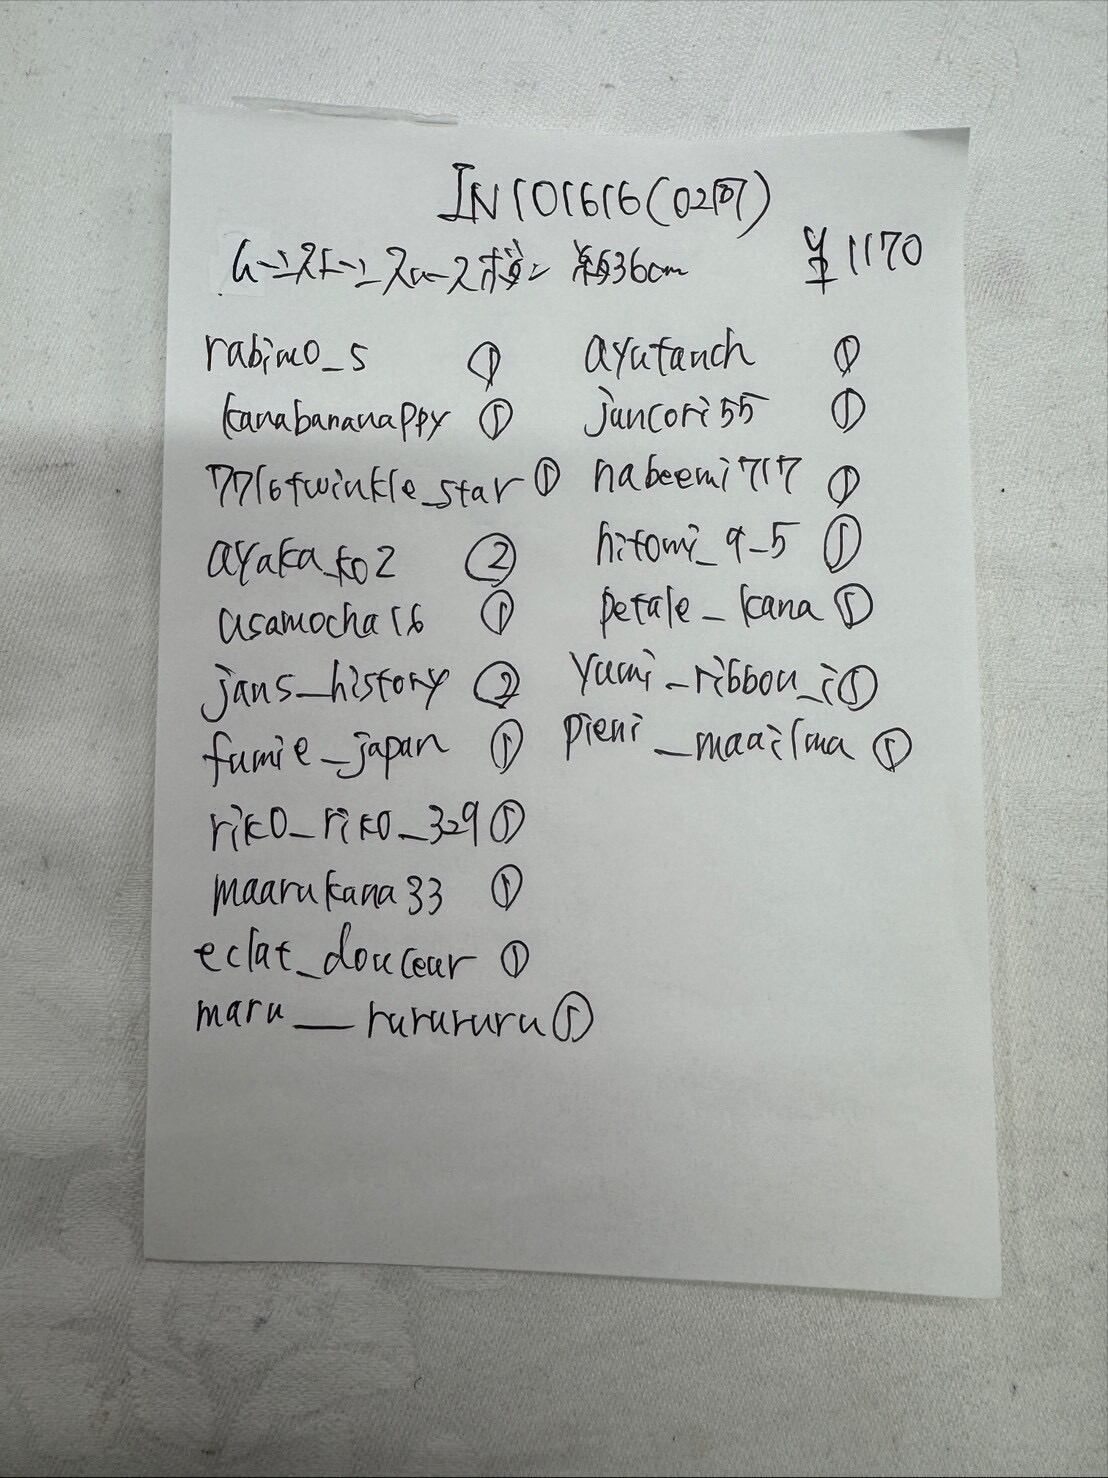 IN101616(02の)
ムーンストーン スムースボタン 約36cm ¥1170
rabimo_s ①
kanabananappy ①
7716twinkle_star ①
ayaka_ko2 ②
asamocha16 ①
jans_history ②
fumie_japan ①
riko_riko_329 ①
maarukana33 ①
eclat_douceur ①
maru__rurururu ①
ayutanch ①
juncori55 ①
nabeemi717 ①
hitomi_9_5 ①
petale_kana ①
yumi_ribbon_i ①
pieni_maailma ①